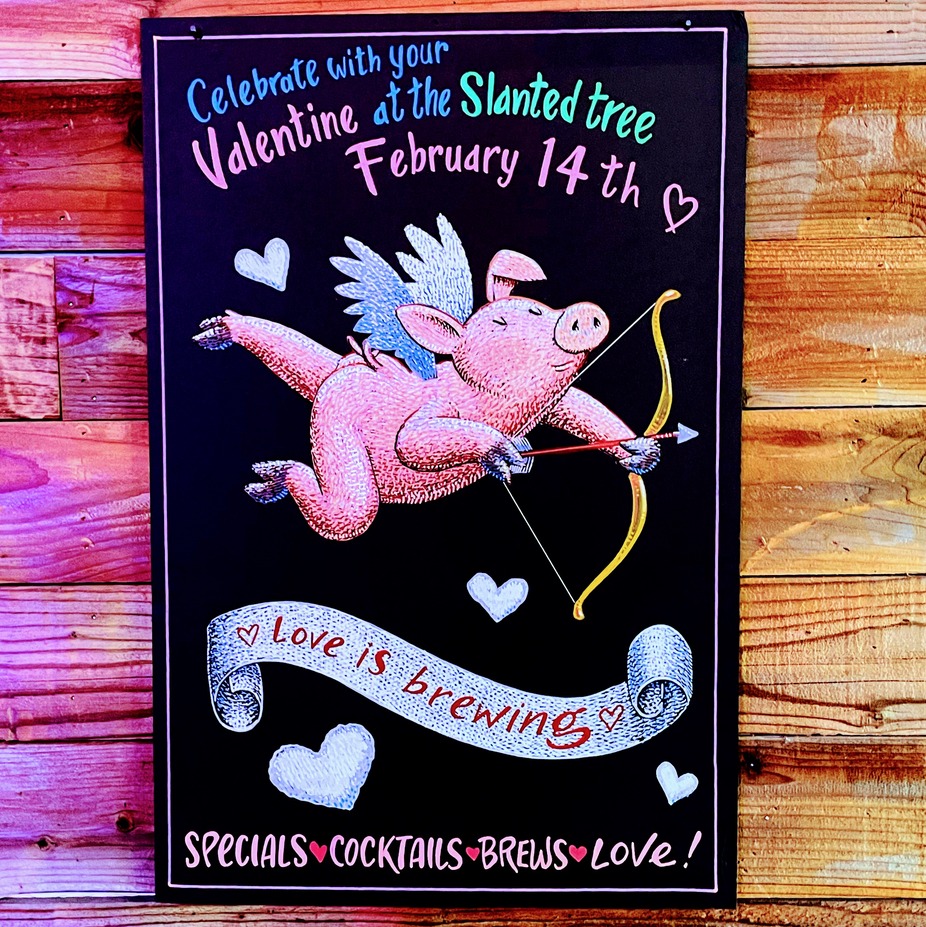 Celebrate with your
Valentine at the Slanted tree
February 14th
Love is brewing
SPECIALS♥COCKTAILS♥BREWS♥LOVE!